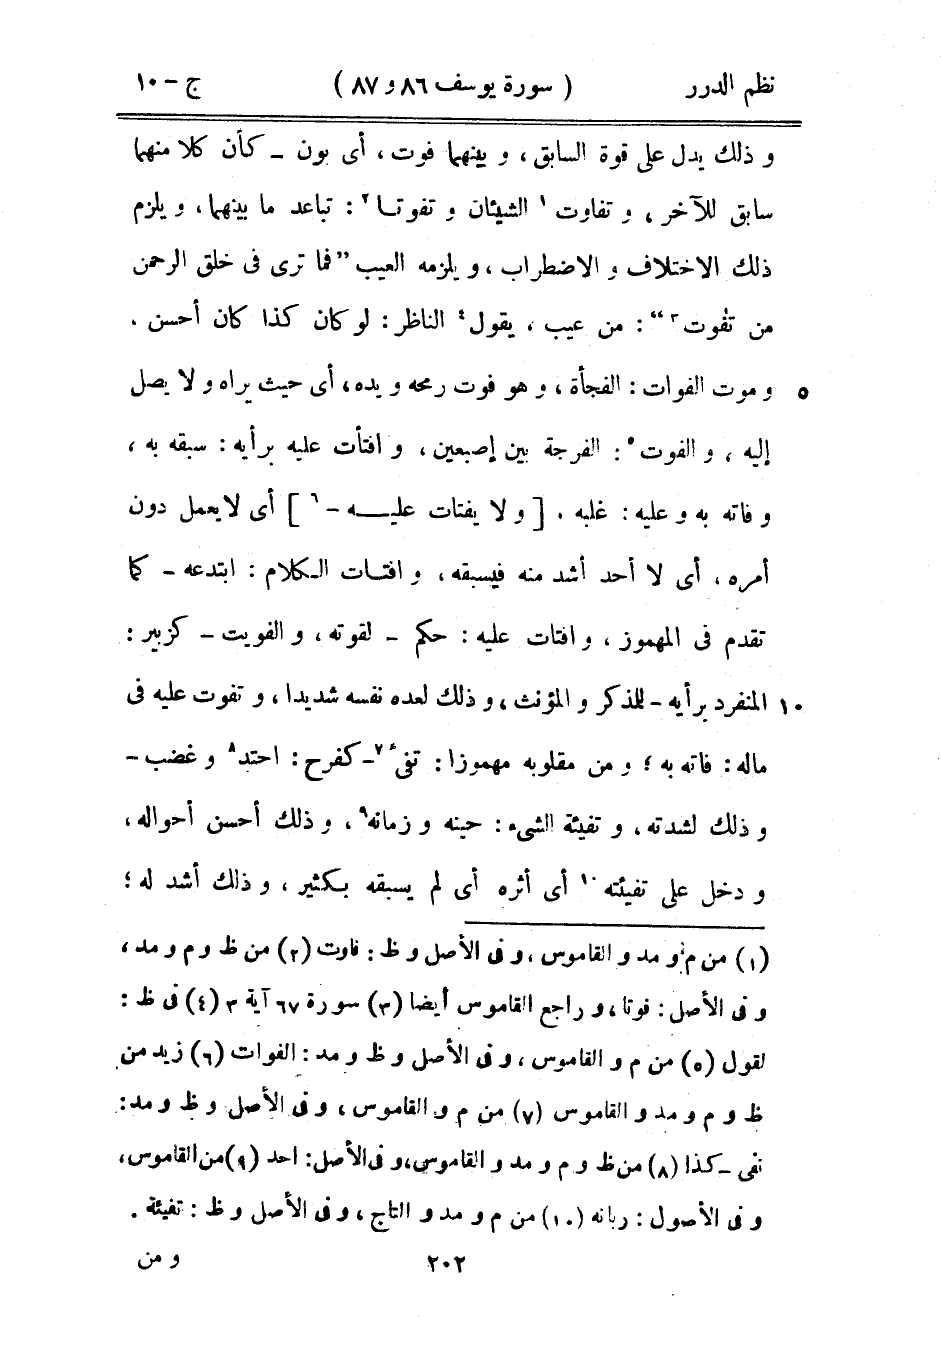 نظم الدرر ( سورة يوسف ٨٦ و ٨٧ ) ج - ١٠
و ذلك يدل على قوة السابق ، و بينهما فوت ، أى بون - كأن كلا منهما
سابق للآخر ، و تفاوت ١ الشيئان و تفوتـا ٢ : تباعد ما بينهما ، و يلزم
ذلك الاختلاف و الاضطراب ، و يلزمه العيب "فما ترى فى خلق الرحمن
من تفٰوت ٣ " : من عيب ، يقول ٤ الناظر : لو كان كذا كان أحسن .
٥ و موت الفوات : الفجأة ، و هو فوت رمحه و يده ، أى حيث يراه و لا يصل
إليه ، و الفوت ٥ : الفرجة بين إصبعين ، و افتأت عليه برأيه : سبقه به ،
و فاته به و عليه : غلبه . [ و لا يفتات عليـــه - ٦ ] أى لا يعمل دون
أمره ، أى لا أحد أشد منه فيسبقه ، و افتـات الـكلام : ابتدعه - كما
تقدم فى المهموز ، و افتات عليه : حكم - لقوته ، و الفويت - كزبير :
١٠ المنفرد برأيه - للمذكر و المؤنث ، و ذلك لعده نفسه شديدا ، و تفوت عليه فى
ماله : فاته به ؛ و من مقلوبه مهموزا : تفىء ٧ - كفرح : احتد ٨ و غضب -
و ذلك لشدته ، و تفيئة الشىء : حينه و زمانه ٩ ، و ذلك أحسن أحواله ،
و دخل على تفيئته ١٠ أى أثره أى لم يسبقه بـكثير ، و ذلك أشد له ؛
(١) من م و مد و القاموس ، و فى الأصل و ظ : فاوت (٢) من ظ و م و مد ،
و فى الأصل : فوتا ، و راجع القاموس أيضا (٣) سورة ٦٧ آية ٣ (٤) فى ظ :
لقول (٥) من م و القاموس ، و فى الأصل و ظ و مد : الفوات (٦) زيد من
ظ و م و مد و القاموس (٧) من م و القاموس ، و فى الأصل و ظ و مد :
نفى - كذا (٨) من ظ و م و مد و القاموس ، و فى الأصل : احد (٩) من القاموس ،
و فى الأصول : ربانه (١٠) من م و مد و التاج ، و فى الأصل و ظ : تفيئة .
٢٠٢ و من